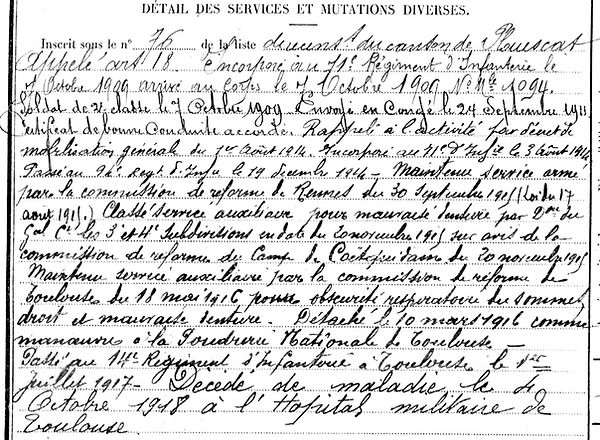 DÉTAIL DES SERVICES ET MUTATIONS DIVERSES.
Inscrit sous le n° 76 de la liste du canton de Plouescat
Appelé art 18. Incorporé au 71e Régiment d'Infanterie le
7 Octobre 1909 arrivé au corps le 7 Octobre 1909 Nº Mle 1094.
Soldat de 2e classe le 7 Octobre 1909. Envoyé en Congé le 24 Septembre 1911
Certificat de bonne Conduite accordé. Rappelé à l'activité par décret de
mobilisation générale du 1er Août 1914. Incorporé au 71e d'Infie le 3 Août 1914
Passé au 94e Regt d'Infie le 19 décembre 1914 - Maintenu service armé
par la commission de réforme de Rennes du 30 Septembre 1915 (Loi du 17
août 1915.) Classé service auxiliaire pour mauvaise denture par du
Gal Ct les 3e et 4e Subdivisions en date du 20 novembre 1915 sur avis de la
commission de réforme du Camp de Coëtquidam du 20 novembre 1915
Maintenu service auxiliaire par la commission de réforme de
Toulouse du 18 mai 1916 pour obscurité respiratoire du sommet
droit et mauvaise denture. Détaché le 10 mars 1916 comme
manœuvre à la Poudrerie Nationale de Toulouse -
Passé au 14e Régiment d'Infanterie à Toulouse le 1er
juillet 1917 - Décédé de maladie le
Octobre 1918 à l'Hopital militaire de
Toulouse.